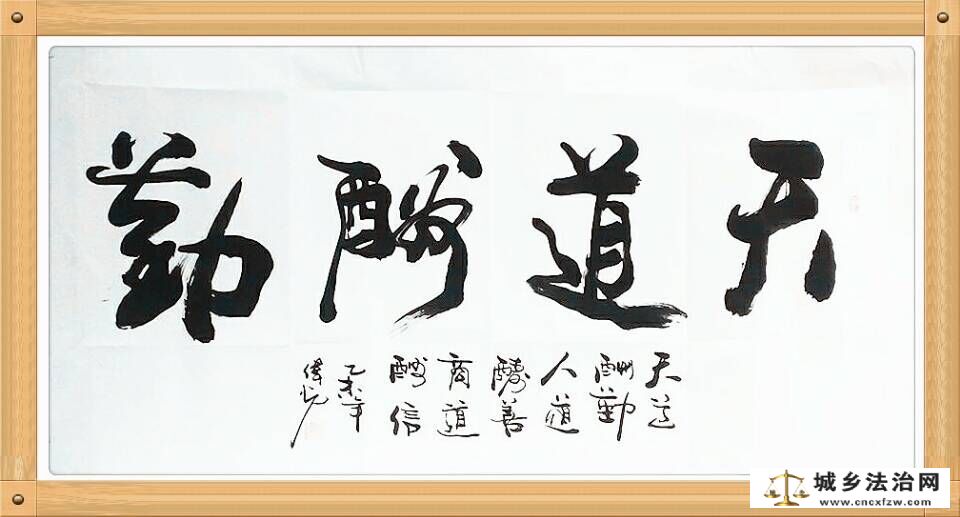 天道酬勤
天道
酬勤
人道
酬善
商道
酬信
乙未年
城乡法治网
www.cncxfzw.com